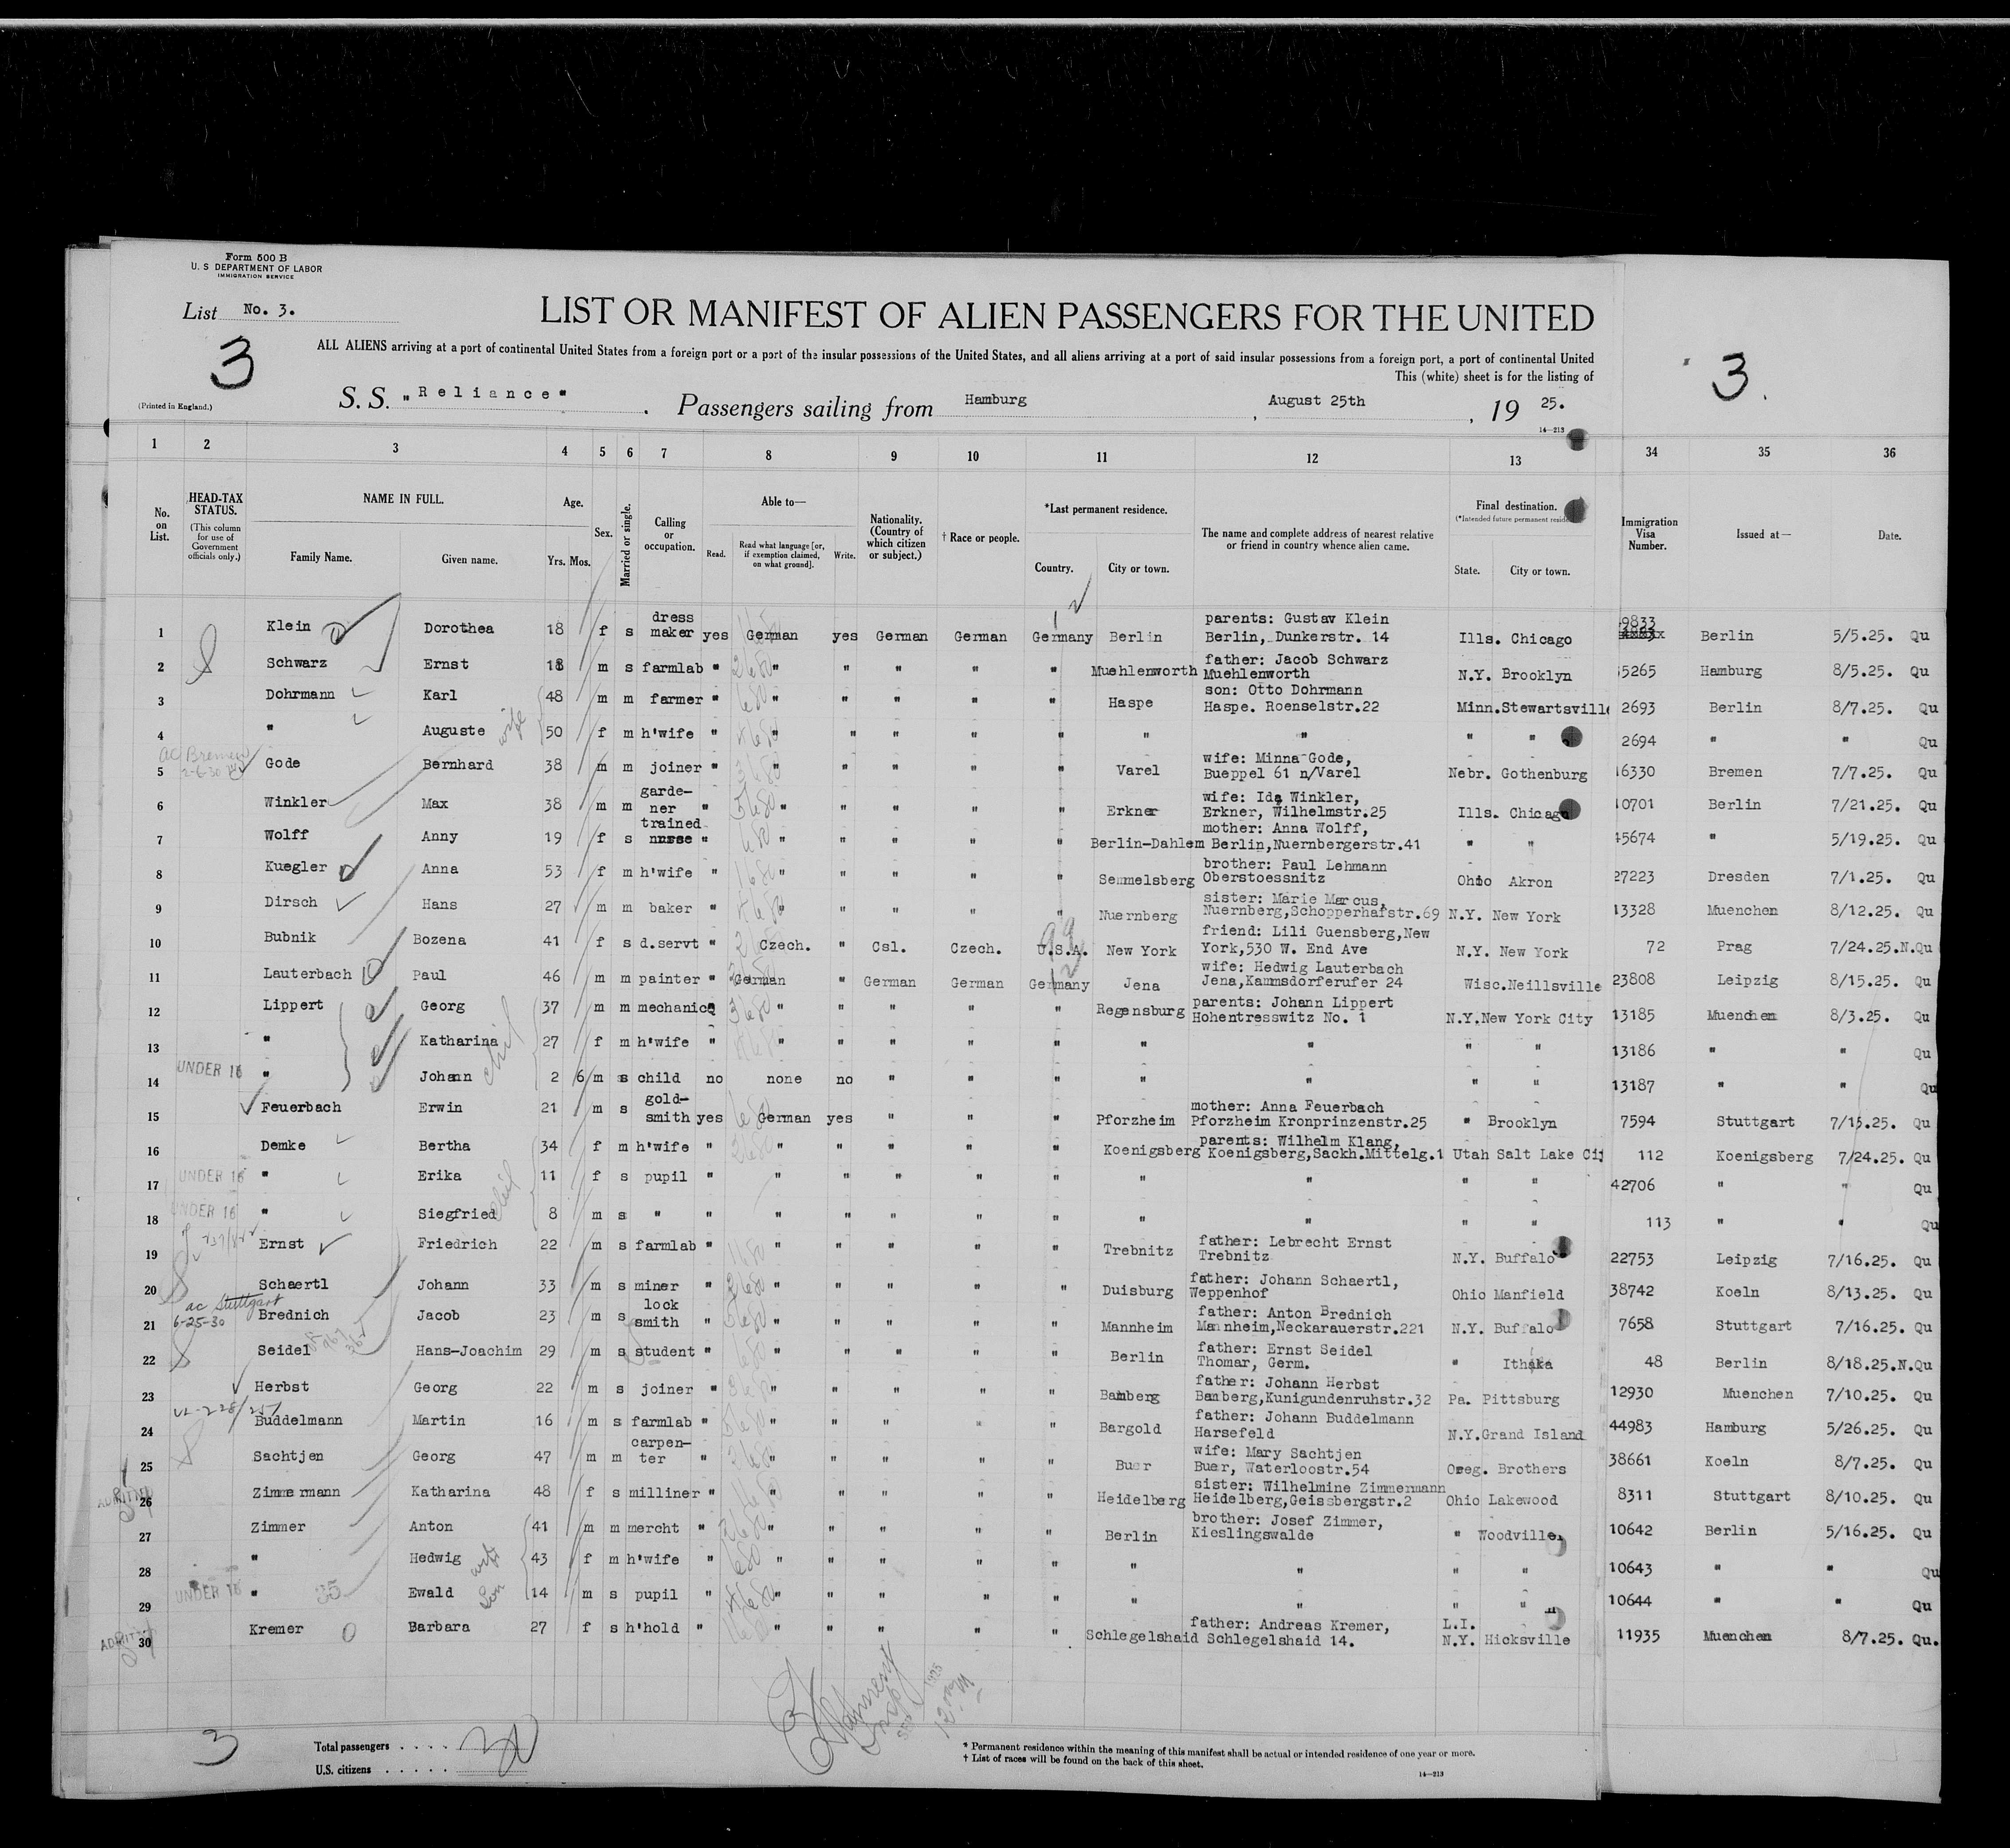 Form 500 B
U. S DEPARTMENT OF LABOR
IMMIGRATION SERVICE
List No. 3.
3
LIST OR MANIFEST OF ALIEN PASSENGERS FOR THE UNITED
ALL ALIENS arriving at a port of continental United States from a foreign port or a port of the insular possessions of the United States, and all aliens arriving at a port of said insular possessions from a foreign port, a port of continental United
This (white) sheet is for the listing of
3.
(Printed in England.)
S. S. „Reliance" . Passengers sailing from Hamburg , August 25th , 19 25.
14—213
1 2 3 4 5 6 7 8 9 10 11 12 13 34 35 36
No. on List. HEAD-TAX STATUS. (This column for use of Government officials only.) NAME IN FULL. Family Name. Given name. Age. Yrs. Mos. Sex. Married or single. Calling or occupation. Able to— Read. Read what language [or, if exemption claimed, on what ground]. Write. Nationality. (Country of which citizen or subject.) † Race or people. *Last permanent residence. Country. City or town. The name and complete address of nearest relative or friend in country whence alien came. Final destination. (*Intended future permanent State. City or town. Immigration Visa Number. Issued at— Date.
1 Klein Dorothea 18 f s dress maker yes German yes German German Germany Berlin parents: Gustav Klein Berlin, Dunkerstr. 14 Ills. Chicago 9833 Berlin 5/5.25. Qu
2 Schwarz Ernst 18 m s farmlab " " " " " " Muehlenworth father: Jacob Schwarz Muehlenworth N.Y. Brooklyn 5265 Hamburg 8/5.25. Qu
3 Dohrmann Karl 48 m m farmer " " " " " " Haspe son: Otto Dohrmann Haspe. Roenselstr.22 Minn. Stewartsville 2693 Berlin 8/7.25. Qu
4 " Auguste wife 50 f m h'wife " " " " " " " " " " 2694 " " Qu
5 ac Bremen 2-6-30 Gode Bernhard 38 m m joiner " " " " " " Varel wife: Minna Gode, Bueppel 61 n/Varel Nebr. Gothenburg 6330 Bremen 7/7.25. Qu
6 Winkler Max 38 m m garde-ner " " " " " " Erkner wife: Ida Winkler, Erkner, Wilhelmstr.25 Ills. Chicago 0701 Berlin 7/21.25. Qu
7 Wolff Anny 19 f s trained nurse " " " " " " Berlin-Dahlem mother: Anna Wolff, Berlin,Nuernbergerstr.41 " " 45674 " 5/19.25. Qu
8 Kuegler Anna 53 f m h'wife " " " " " " Semmelsberg brother: Paul Lehmann Oberstoessnitz Ohio Akron 27223 Dresden 7/1.25. Qu
9 Dirsch Hans 27 m m baker " " " " " " Nuernberg sister: Marie Marcus, Nuernberg,Schopperhafstr.69 N.Y. New York 13328 Muenchen 8/12.25. Qu
10 Bubnik Bozena 41 f s d.servt " Czech. " Csl. Czech. U.S.A. New York friend: Lili Guensberg,New York,530 W. End Ave N.Y. New York 72 Prag 7/24.25.N.Qu
11 Lauterbach Paul 46 m m painter " German " German German Germany Jena wife: Hedwig Lauterbach Jena,Kammsdorferufer 24 Wisc.Neillsville 23808 Leipzig 8/15.25. Qu
12 Lippert Georg 37 m m mechanic " " " " " " Regensburg parents: Johann Lippert Hohentresswitz No. 1 N.Y.New York City 13185 Muenchen 8/3.25. Qu
13 " Katharina 27 f m h'wife " " " " " " " " " " 13186 " " Qu
14 UNDER 16 " Johann 2 6 m s child no none no " " " " " " " 13187 " " Qu
15 Feuerbach Erwin 21 m s gold-smith yes German yes " " " Pforzheim mother: Anna Feuerbach Pforzheim Kronprinzenstr.25 " Brooklyn 7594 Stuttgart 7/15.25. Qu
16 Demke Bertha 34 f m h'wife " " " " " " Koenigsberg parents: Wilhelm Klang, Koenigsberg,Sackh.Mittelg.1 Utah Salt Lake Cit 112 Koenigsberg 7/24.25. Qu
17 UNDER 16 " Erika 11 f s pupil " " " " " " " " " " 42706 " " Qu
18 UNDER 16 " Siegfried 8 m s " " " " " " " " " " " 113 " " Qu
19 Ernst Friedrich 22 m s farmlab " " " " " " Trebnitz father: Lebrecht Ernst Trebnitz N.Y. Buffalo 22753 Leipzig 7/16.25. Qu
20 Schaertl Johann 33 m s miner " " " " " " Duisburg father: Johann Schaertl, Weppenhof Ohio Manfield 38742 Koeln 8/13.25. Qu
21 ac Stuttgart 6-25-30 Brednich Jacob 23 m s lock smith " " " " " " Mannheim father: Anton Brednich Mannheim,Neckarauerstr.221 N.Y. Buffalo 7658 Stuttgart 7/16.25. Qu
22 Seidel Hans-Joachim 29 m s student " " " " " " Berlin father: Ernst Seidel Thomar, Germ. " Ithaka 48 Berlin 8/18.25.N.Qu
23 Herbst Georg 22 m s joiner " " " " " " Bamberg father: Johann Herbst Bamberg,Kunigundenruhstr.32 Pa. Pittsburg 12930 Muenchen 7/10.25. Qu
24 Buddelmann Martin 16 m s farmlab " " " " " " Bargold father: Johann Buddelmann Harsefeld N.Y.Grand Island 44983 Hamburg 5/26.25. Qu
25 Sachtjen Georg 47 m m carpen-ter " " " " " " Buer wife: Mary Sachtjen Buer, Waterloostr.54 Oreg. Brothers 38661 Koeln 8/7.25. Qu
26 ADMITTED Zimmermann Katharina 48 f s milliner " " " " " " Heidelberg sister: Wilhelmine Zimmermann Heidelberg,Geissbergstr.2 Ohio Lakewood 8311 Stuttgart 8/10.25. Qu
27 Zimmer Anton 41 m m mercht " " " " " " Berlin brother: Josef Zimmer, Kieslingswalde " Woodville. 10642 Berlin 5/16.25. Qu
28 " Hedwig wife 43 f m h'wife " " " " " " " " " " 10643 " " Qu
29 UNDER 16 " 35 Ewald Son 14 m s pupil " " " " " " " " " " 10644 " " Qu
30 ADMITTED Kremer Barbara 27 f s h'hold " " " " " " Schlegelshaid father: Andreas Kremer, Schlegelshaid 14. L.I. N.Y. Hicksville 11935 Muenchen 8/7.25. Qu.
3
Total passengers . . . . 30
U.S. citizens . . . . .
* Permanent residence within the meaning of this manifest shall be actual or intended residence of one year or more.
† List of races will be found on the back of this sheet.
14—213